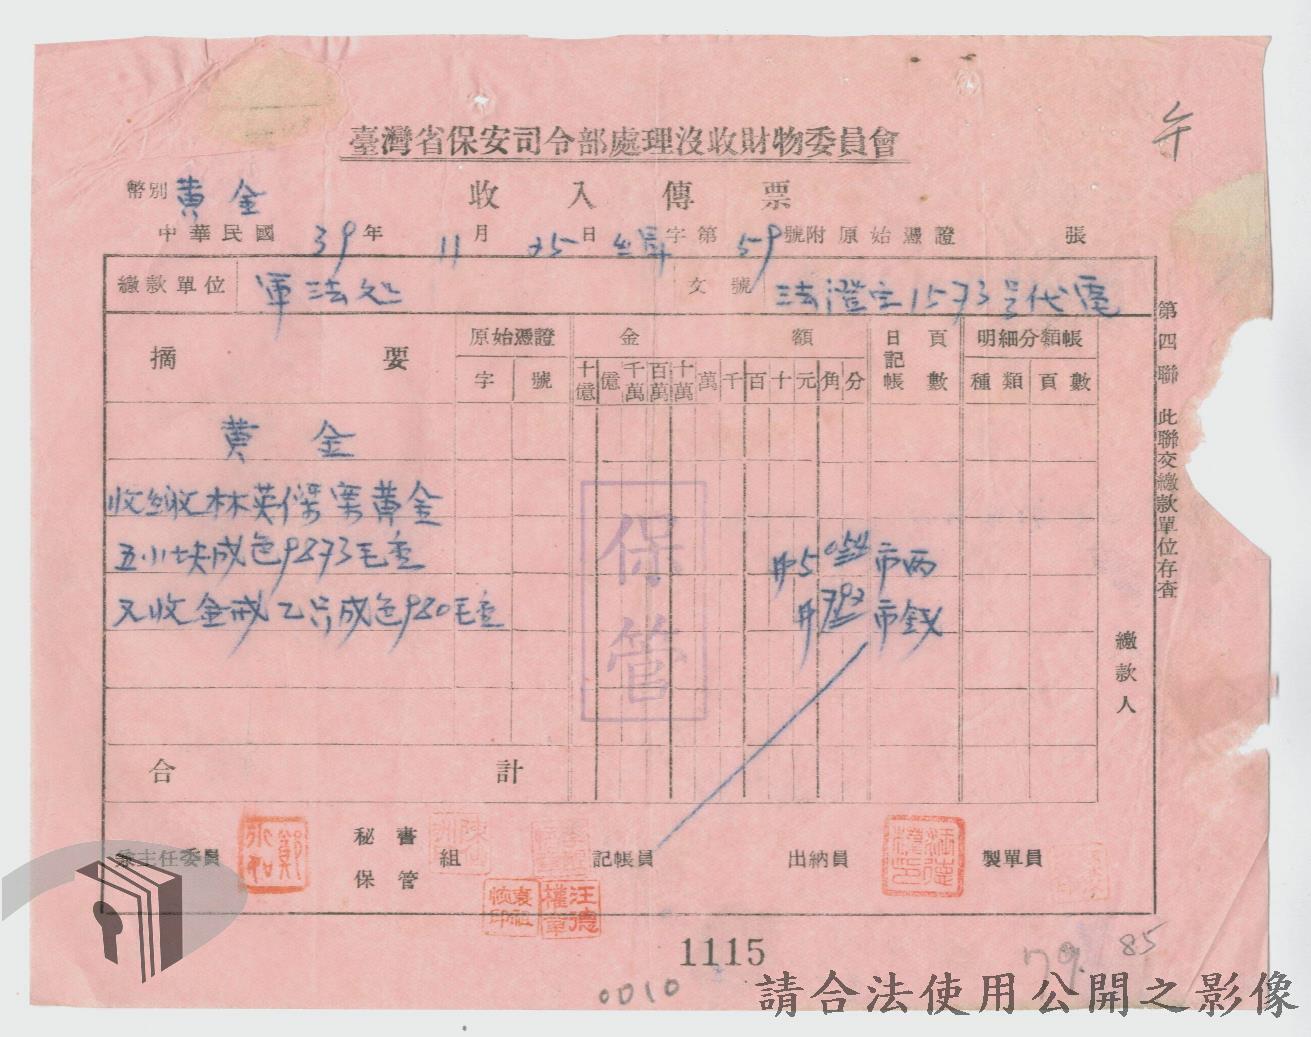 臺灣省保安司令部處理沒收財物委員會
幣別 黃金
收入傳票
中華民國 39 年 11 月 25 日 字第 59 號附原始憑證 張
繳款單位 軍法处 文號 法澄字1573号代電
摘要 原始憑證 金額 日記帳 頁數 明細分類帳
字 號 十億 億 千萬 百萬 十萬 萬 千 百 十 元 角 分 種類 頁數
黃金
收繳林英傑案黃金
五小块成色9873毛重 #5 市兩
又收金戒乙只成色980毛重 #792 市錢
保管
合計
兼主任委員 鄭永和 秘書 保管 組 記帳員 出納員 製單員
袁祖恢印 汪德權章
第四聯 此聯交繳款單位存查
繳款人
1115
0010
79.
85
請合法使用公開之影像